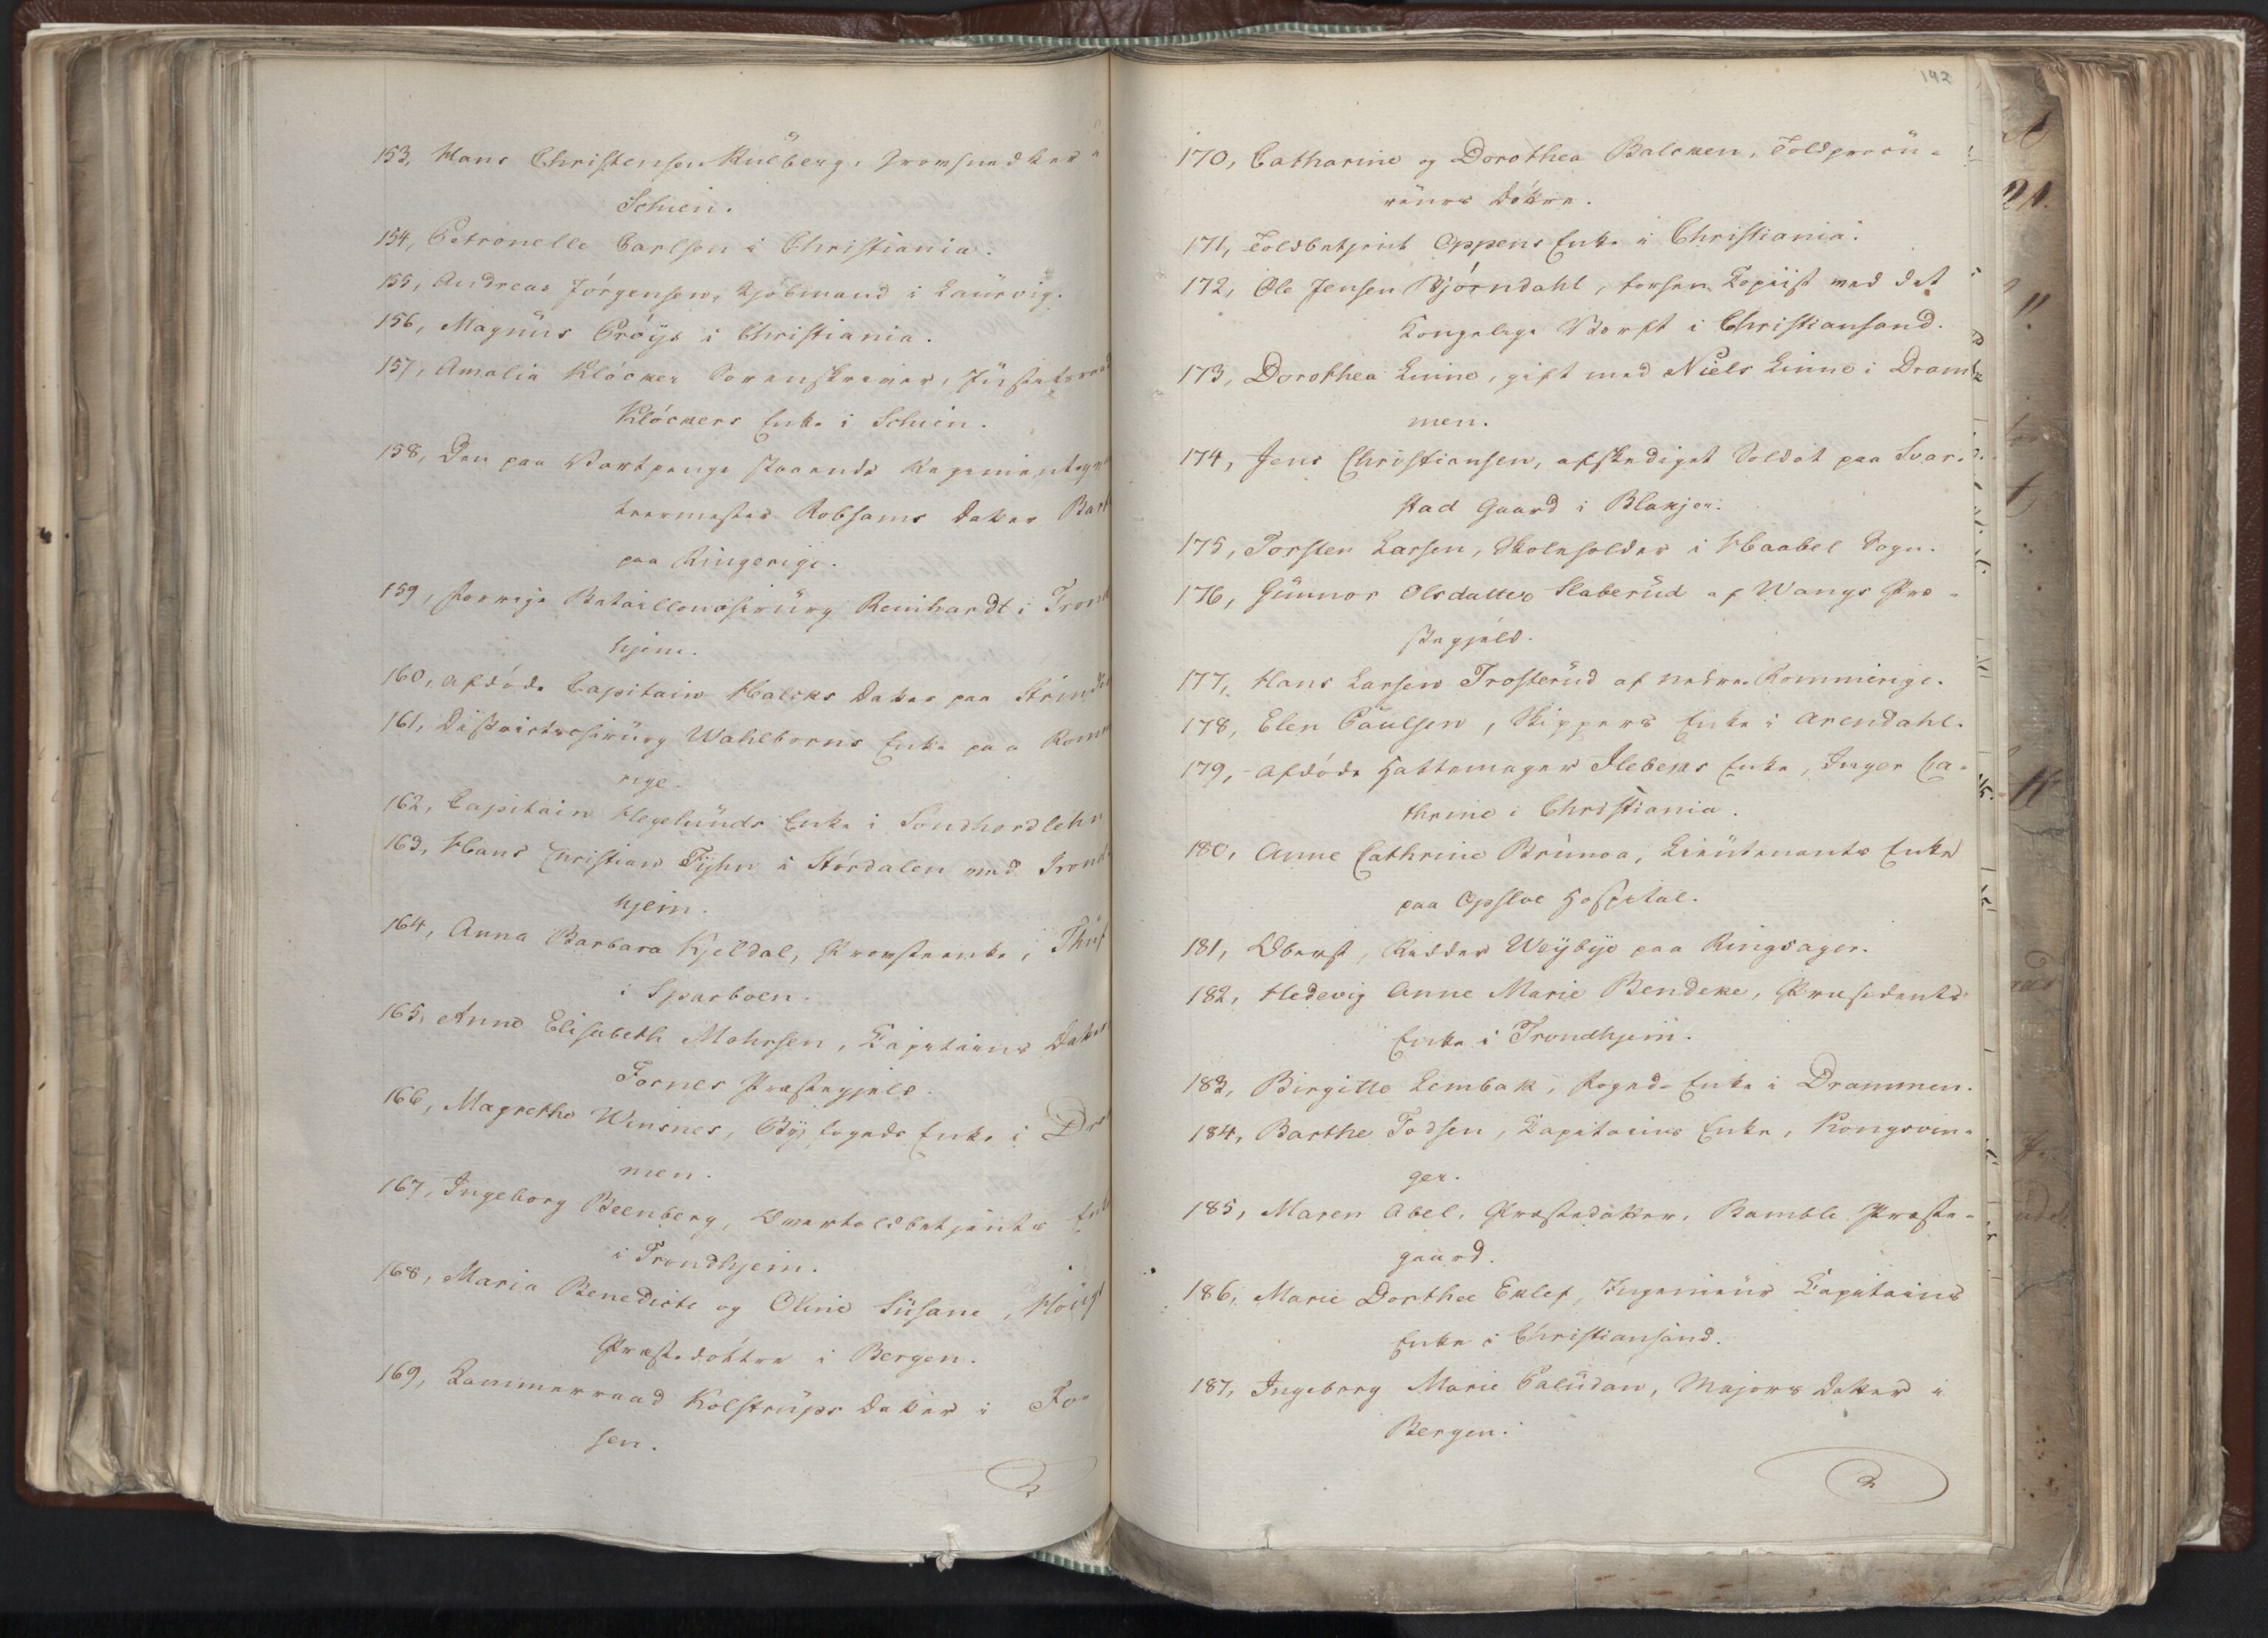 153, Hans Christensen Kulberg, Grovsmedker i
Schien.
154, Petronelle Carlsen i Christiania.
155, Andreas Jörgensen, Kjöbmand i Laurvig.
156, Magnus Pröys i Christiania.
157, Amalia Klöcker Sorenskriver, Justitsraad
Klöckers Enke i Schien.
158, Den paa Vartpenge staaende Regimentsqvar
teermester Robsams Datter
paa Ringerige.
159, forrige Bataillonschirurg Reinhardt i Trond
hjem.
160, afdöde Capitain Halcks Datter paa
161, Districtschirurg Wahlborns Enke paa Romme
rige.
162, Capitain Hegelunds Enke i Söndhordlehn
163, Hans Christian Tyhn i Stördalen ved Trond-
hjem.
164, Anna Barbara Kjeldal, Provsteenke i
i Sparboen.
165, Anne Elisabeth Mohrsen, Kapitains Datter
Fosnes Præstegjeld.
166, Magrethe Winsnes, Byfogeds Enke i Dra
men.
167, Ingeborg Beenberg, Overtoldbetjents Enke
i Trondhjem.
168, Maria Benedicte og Oline Susane,
Præstedöttre i Bergen.
169, Kammerraad Kolstrups Datter i Fo-
sen.
142
170, Catharine og Dorothea Balcken, Toldprocu-
reurs Döttre.
171, Toldbetjent Oppens Enke i Christiania.
172, Ole Jensen Björndahl, forhen Kopiist ved det
Kongelige Værft i Christiansand.
173, Dorothea Linne, gift med Niels Linne i Dram
men.
174, Jens Christiansen, afskediget Soldat paa Svar-
stad Gaard i Blakjer.
175, Torsten Larsen, Skoleholder i Haabel Sogn.
176, Gunnor Olsdatter Slaberud af Wangs Præ-
stegjeld.
177, Hans Larsen Trosterud af nedre Rommerige.
178, Elen Paulsen, Skippers Enke i Arendahl.
179, Afdöde Hattemager Ilebeks Enke, Inger Ca-
thrine i Christiania.
180, Anne Cathrine Brunoa, Lieutenants Enke
paa Opsloe Hospital.
181, Oberst, Ridder Weybye paa Ringsager.
182, Hedevig Anne Marie Bendeke, Præsidents
Enke i Trondhjem.
183, Birgitte Lembak, Fogeds Enke i Drammen.
184, Barthe Todsen, Kapitains Enke, Kongsvin-
ger.
185, Maren Abel, Præstedatter, Bamble Præste-
gaard.
186, Marie Dorthee Eklef, Ingenieur Kapitains
Enke i Christiansand.
187, Ingeborg Marie Paludan, Majors Datter i
Bergen.